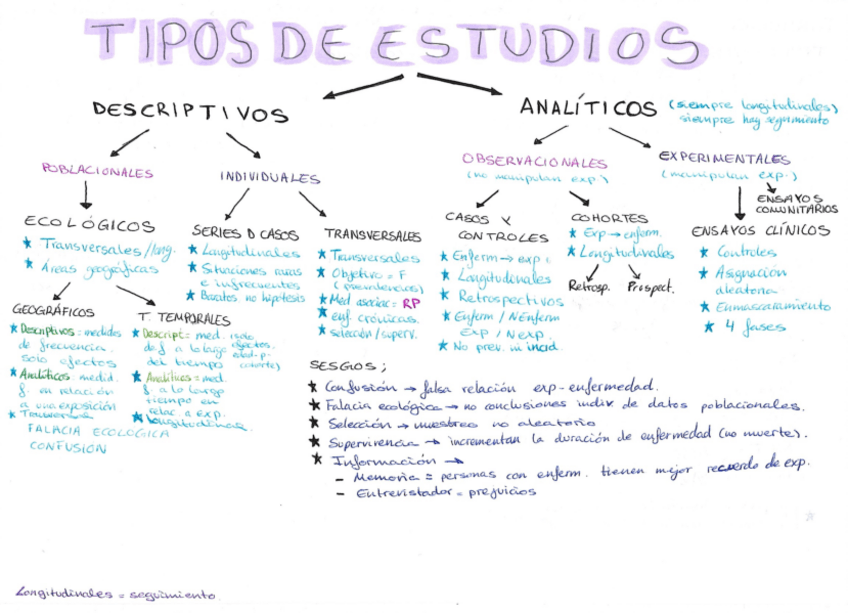 TIPOS DE ESTUDIOS
DESCRIPTIVOS
ANALÍTICOS (siempre longitudinales)
siempre hay seguimiento
POBLACIONALES
INDIVIDUALES
OBSERVACIONALES
(no manipulan exp.)
EXPERIMENTALES
(manipulan exp.)
ENSAYOS
COMUNITARIOS
ECOLÓGICOS
★ Transversales/long.
★ Áreas geográficas
SERIES D CASOS
★ Longitudinales
★ Situaciones raras
e infrecuentes
★ no hipótesis
TRANSVERSALES
★ Transversales
★ Objetivo = F
★ Med asociac = RP
★ enf. crónicas.
★ selección/superv.
CASOS Y
CONTROLES
★ Enferm → exp
★ Longitudinales
★ Retrospectivos
★ Enferm / NEnferm
Exp / Nexp.
★ No prev. ni incid.
COHORTES
★ Exp → enferm.
★ Longitudinales
Retrosp.
Prospect.
ENSAYOS CLÍNICOS
★ Controles
★ Asignación
aleatoria
★ Enmascaramiento
★ 4 fases
GEOGRÁFICOS
★ Descriptivos = medidas
de frecuencia.
solo efectos
★ Analíticos = medid.
f. en relación
a una exposición
★ Transversa
T. TEMPORALES
★ Descript = med. solo
de f a lo largo efectos.
del tiempo
cohorte)
★ Analíticos = med
f. a lo largo
tiempo en
relac a exp.
★ Longitudinal
FALACIA ECOLÓGICA
CONFUSION
SESGOS;
★ Confusión → falsa relación exp - enfermedad.
★ Falacia ecológica → no conclusiones indiv de datos poblacionales.
★ Selección → muestreo no aleatorio
★ Supervivencia → incrementan la duración de enfermedad (no muerte).
★ Información →
- Memoria = personas con enferm. tienen mejor recuerdo de exp.
- Entrevistador = prejuicios
Longitudinales = seguimiento